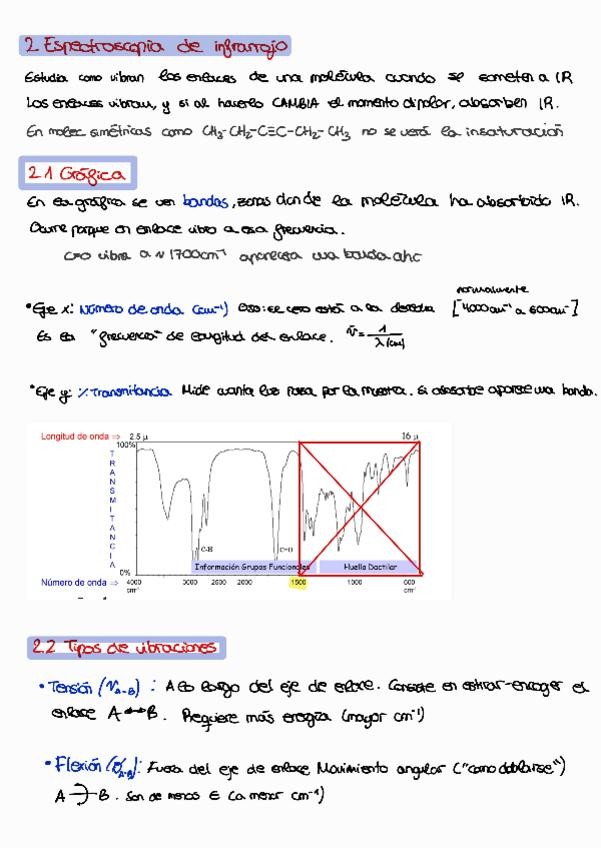 2. Espectroscopia de infrarrojo
Estudia como vibran los enlaces de una molécula cuando se someten a IR
Los enlaces vibran, y si al hacerlo CAMBIA el momento dipolar, absorben IR.
En molec simétricas como CH₃-CH₂-C≡C-CH₂-CH₃ no se verá la insaturación
2.1 Gráfica
En la gráfica se ven bandas, zonas donde la molécula ha absorbido IR.
Ocurre porque un enlace vibró a esa frecuencia.
C=O vibra a ~ 1700cm⁻¹ aparecerá una banda ahí
normalmente
• Eje x: Número de onda (cm⁻¹) está a la derecha [4000cm⁻¹ a 600cm⁻¹]
Es la "frecuencia" de longitud del enlace. ṽ = 1 / λ(cm)
• Eje y: % Transmitancia Mide cuanta luz pasa por la muestra. Si absorbe aparece una banda.
Longitud de onda ⇒ 2.5 μ 16 μ
100%
TRANSMITANCIA
C-H C=O
Información Grupos Funcionales Huella Dactilar
0%
Número de onda ⇒ 4000 3000 2600 2000 1500 1000 600
cm⁻¹ cm⁻¹
2.2 Tipos de vibraciones
• Tensión (ν A-B) : A lo largo del eje de enlace. Consiste en estirar-encoger el
enlace A ↔ B. Requiere más energía (mayor cm⁻¹)
• Flexión (δ A-B): Fuera del eje de enlace Movimiento angular ("como doblarse")
A B. Son de menos E (a menor cm⁻¹)